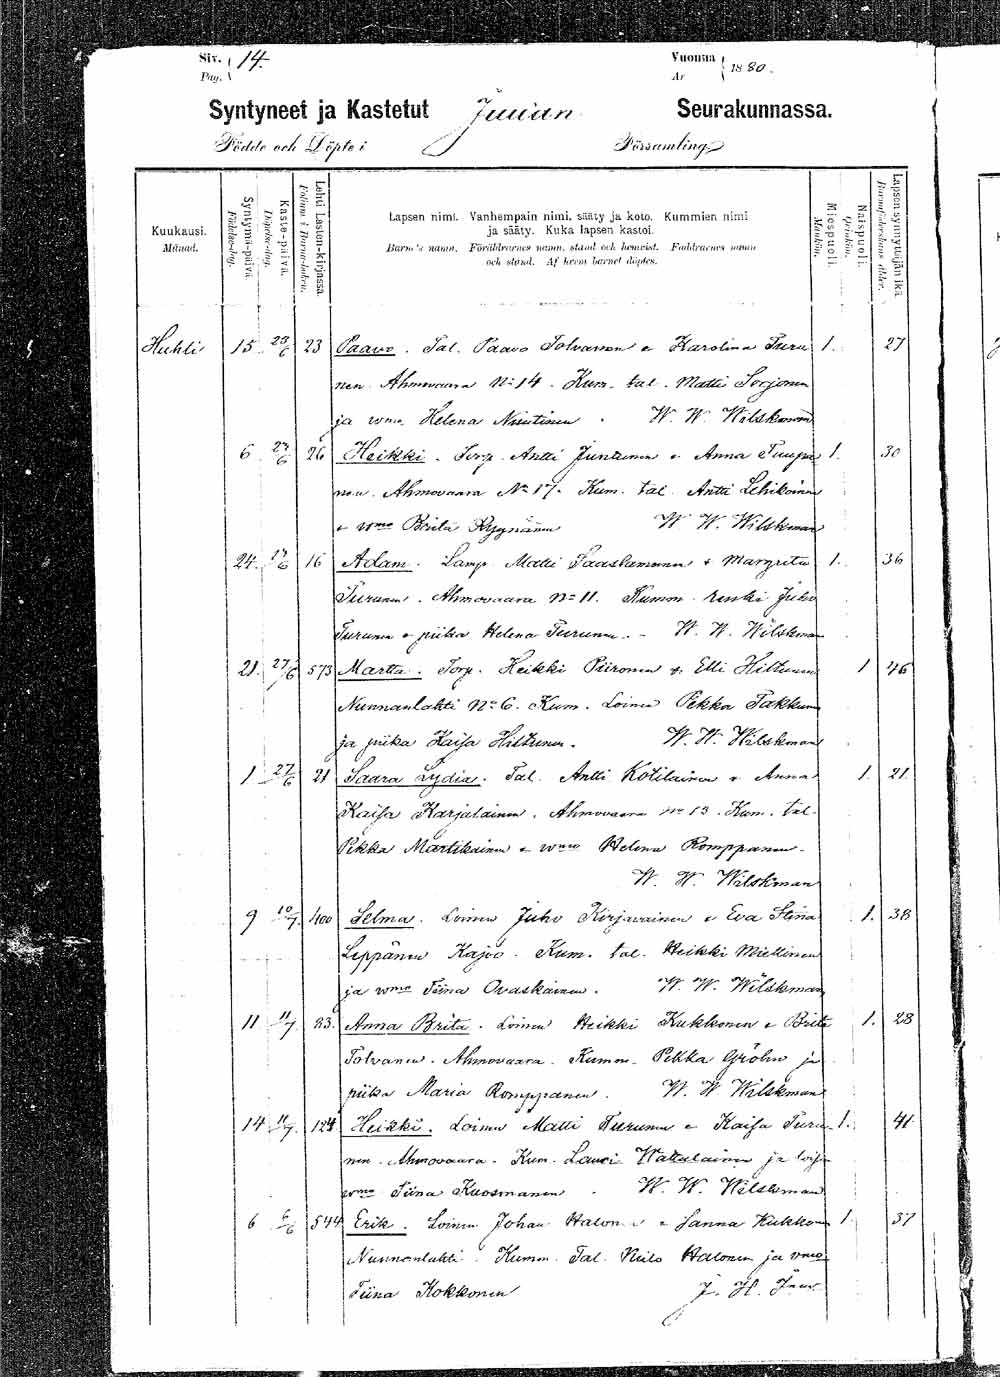 Siv. 14. Vuonna 1880.
Pag. År
Syntyneet ja Kastetut Juuan Seurakunnassa.
Födde och Döpte i Församling
Kuukausi.
Månad.
Syntymä-päivä.
Födelse-dag.
Kaste-päivä.
Döpelse-dag.
Lehti Lasten-kirjassa.
Folium i Barna-boken.
Lapsen nimi. Vanhempain nimi, sääty ja koto. Kummien nimi
ja sääty. Kuka lapsen kastoi.
Barnets namn. Föräldrarnes namn, stånd och hemvist. Faddrarnes namn
och stånd. Af hvem barnet döptes.
Miespuoli.
Mankön.
Naispuoli.
Qvinkön.
Lapsen synnyttäjän ikä.
Barnaföderskans ålder.
Huhti 15 23/6 23 Paavo. Tal. Paavo Tolvanen & Karolina Turu 1. 27
nen Ahmovaara No 14. Kum. tal. Matti Sorjonen
ja vmo Helena Nuutinen. W. W. Wilskman
6 23/6 26 Heikki. Torp. Antti Juntunen & Anna Tuupa 1. 30
nen. Ahmovaara No 17. Kum. tal. Antti Lehikoinen
& vmo Brita Ryynänen W. W. Wilskman
24. 16 Adam. Lamp. Matti Saastamoinen & Margreta 1. 36
Turunen. Ahmovaara No 11. Kumm. renki Juho
Turunen & piika Helena Turunen. - W. W. Wilskman
21. 27/6 573 Martta. Torp. Heikki Piironen & Elli Hiltunen 1 46
Nunnanlahti No 6. Kum. Loinen Pekka Takkunen
ja piika Kaisa Hiltunen. W. W. Wilskman
1 27/6 21 Saara Lydia. Tal. Antti Kotilainen & Anna 1. 21.
Kaisa Karjalainen. Ahmovaara no 13. Kum. tal.
Pekka Martikainen & vmo Helena Romppanen.
W. W. Wilskman
9 10/7. 400 Selma. Loinen Juho Kirjavainen & Eva Stina 1. 38
Leppänen Kajoo. Kum. tal. Heikki Miettinen
ja vmo Tiina Ovaskainen. W. W. Wilskman
11 11/7 23. Anna Brita. Loinen Heikki Kukkonen & Brita 1. 28
Tolvanen. Ahmovaara. Kumm. Pekka Gröhn ja
piika Maria Romppanen. W. W. Wilskman
14 11/7. 124 Heikki. Loinen Matti Turunen & Kaisa Turu- 1. 41
nen. Ahmovaara. Kum. Lauri Wattulainen ja
vmo Tiina Kuosmanen. W. W. Wilskman
6 6/6 544 Erik. Loinen Johan Halonen & Sanna Kukkonen 1. 37
Nunnanlahti. Kumm. Tal. Niilo Halonen ja vmo
Tiina Kokkonen J. H.